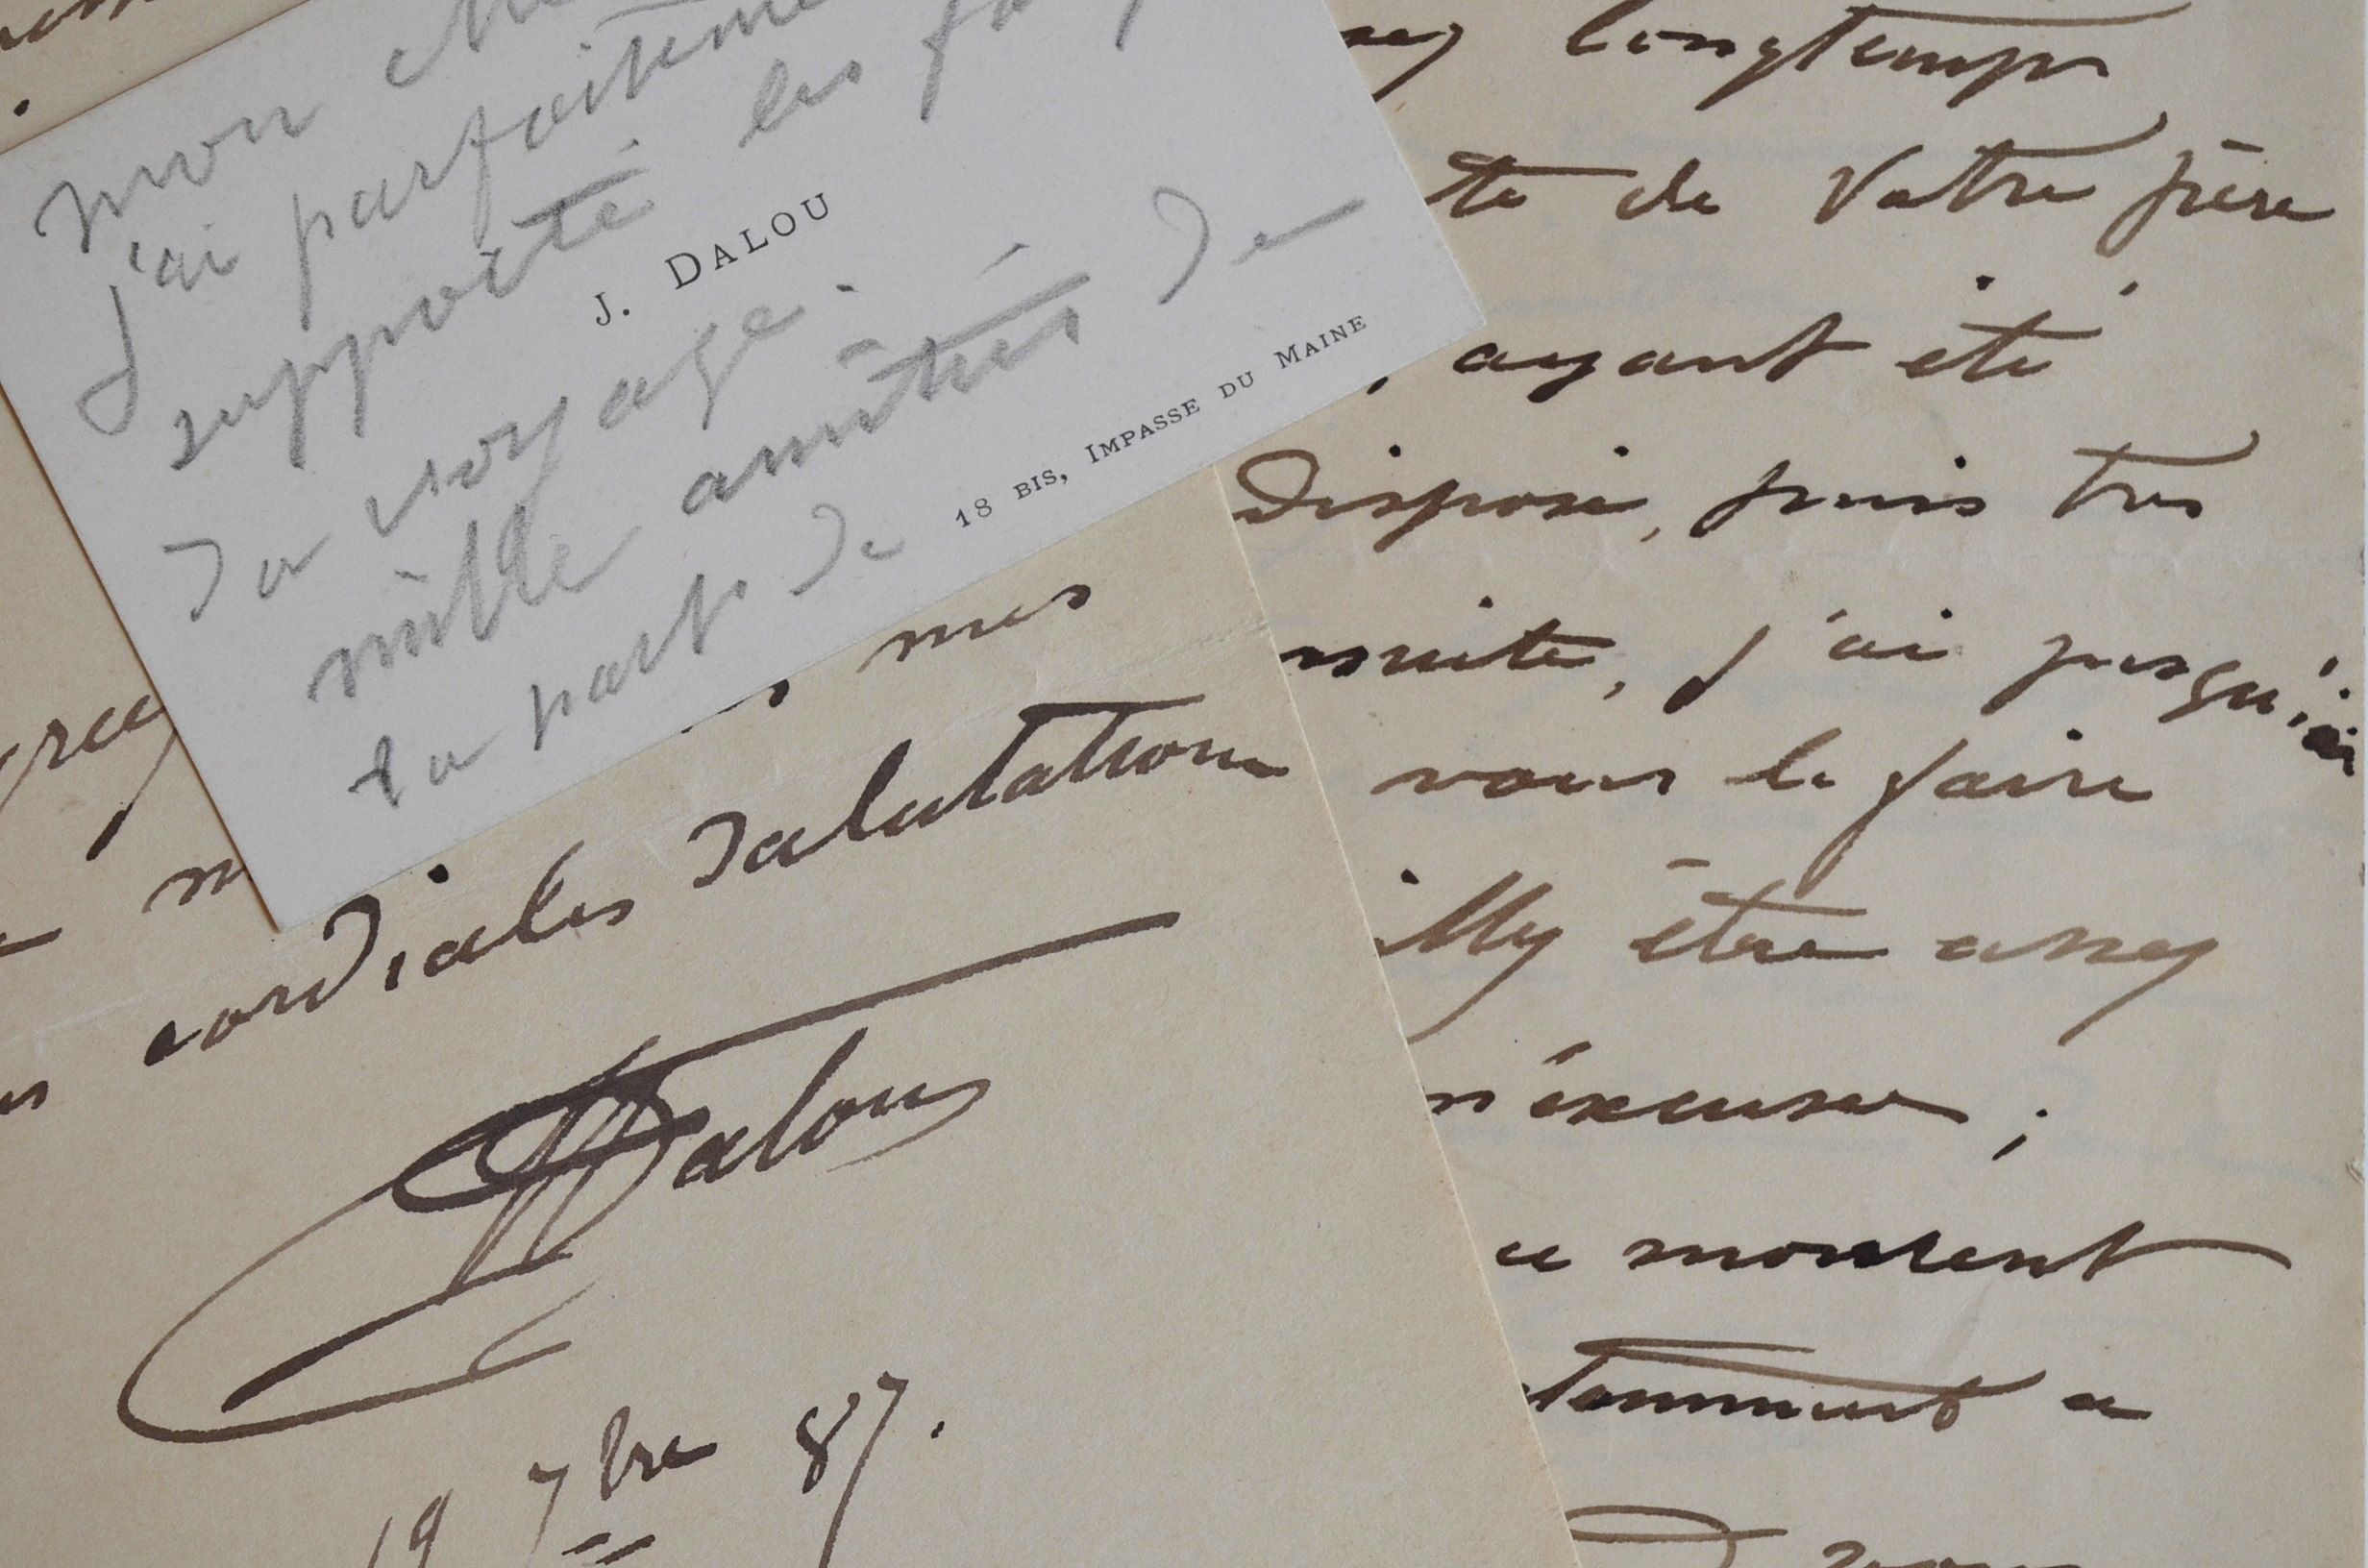 mon
j'ai parfaitement
supporté les
J. DALOU
du voyage.
mille amitiés de
la part de
18 BIS, IMPASSE DU MAINE
mes
cordiales salutations
Dalou
19 7bre 87.
longtemps
de votre père
, ayant été
disposé, puis très
suite, j'ai jusqu'ici
vous le faire
être assez
m'excuser ;
ce moment
a